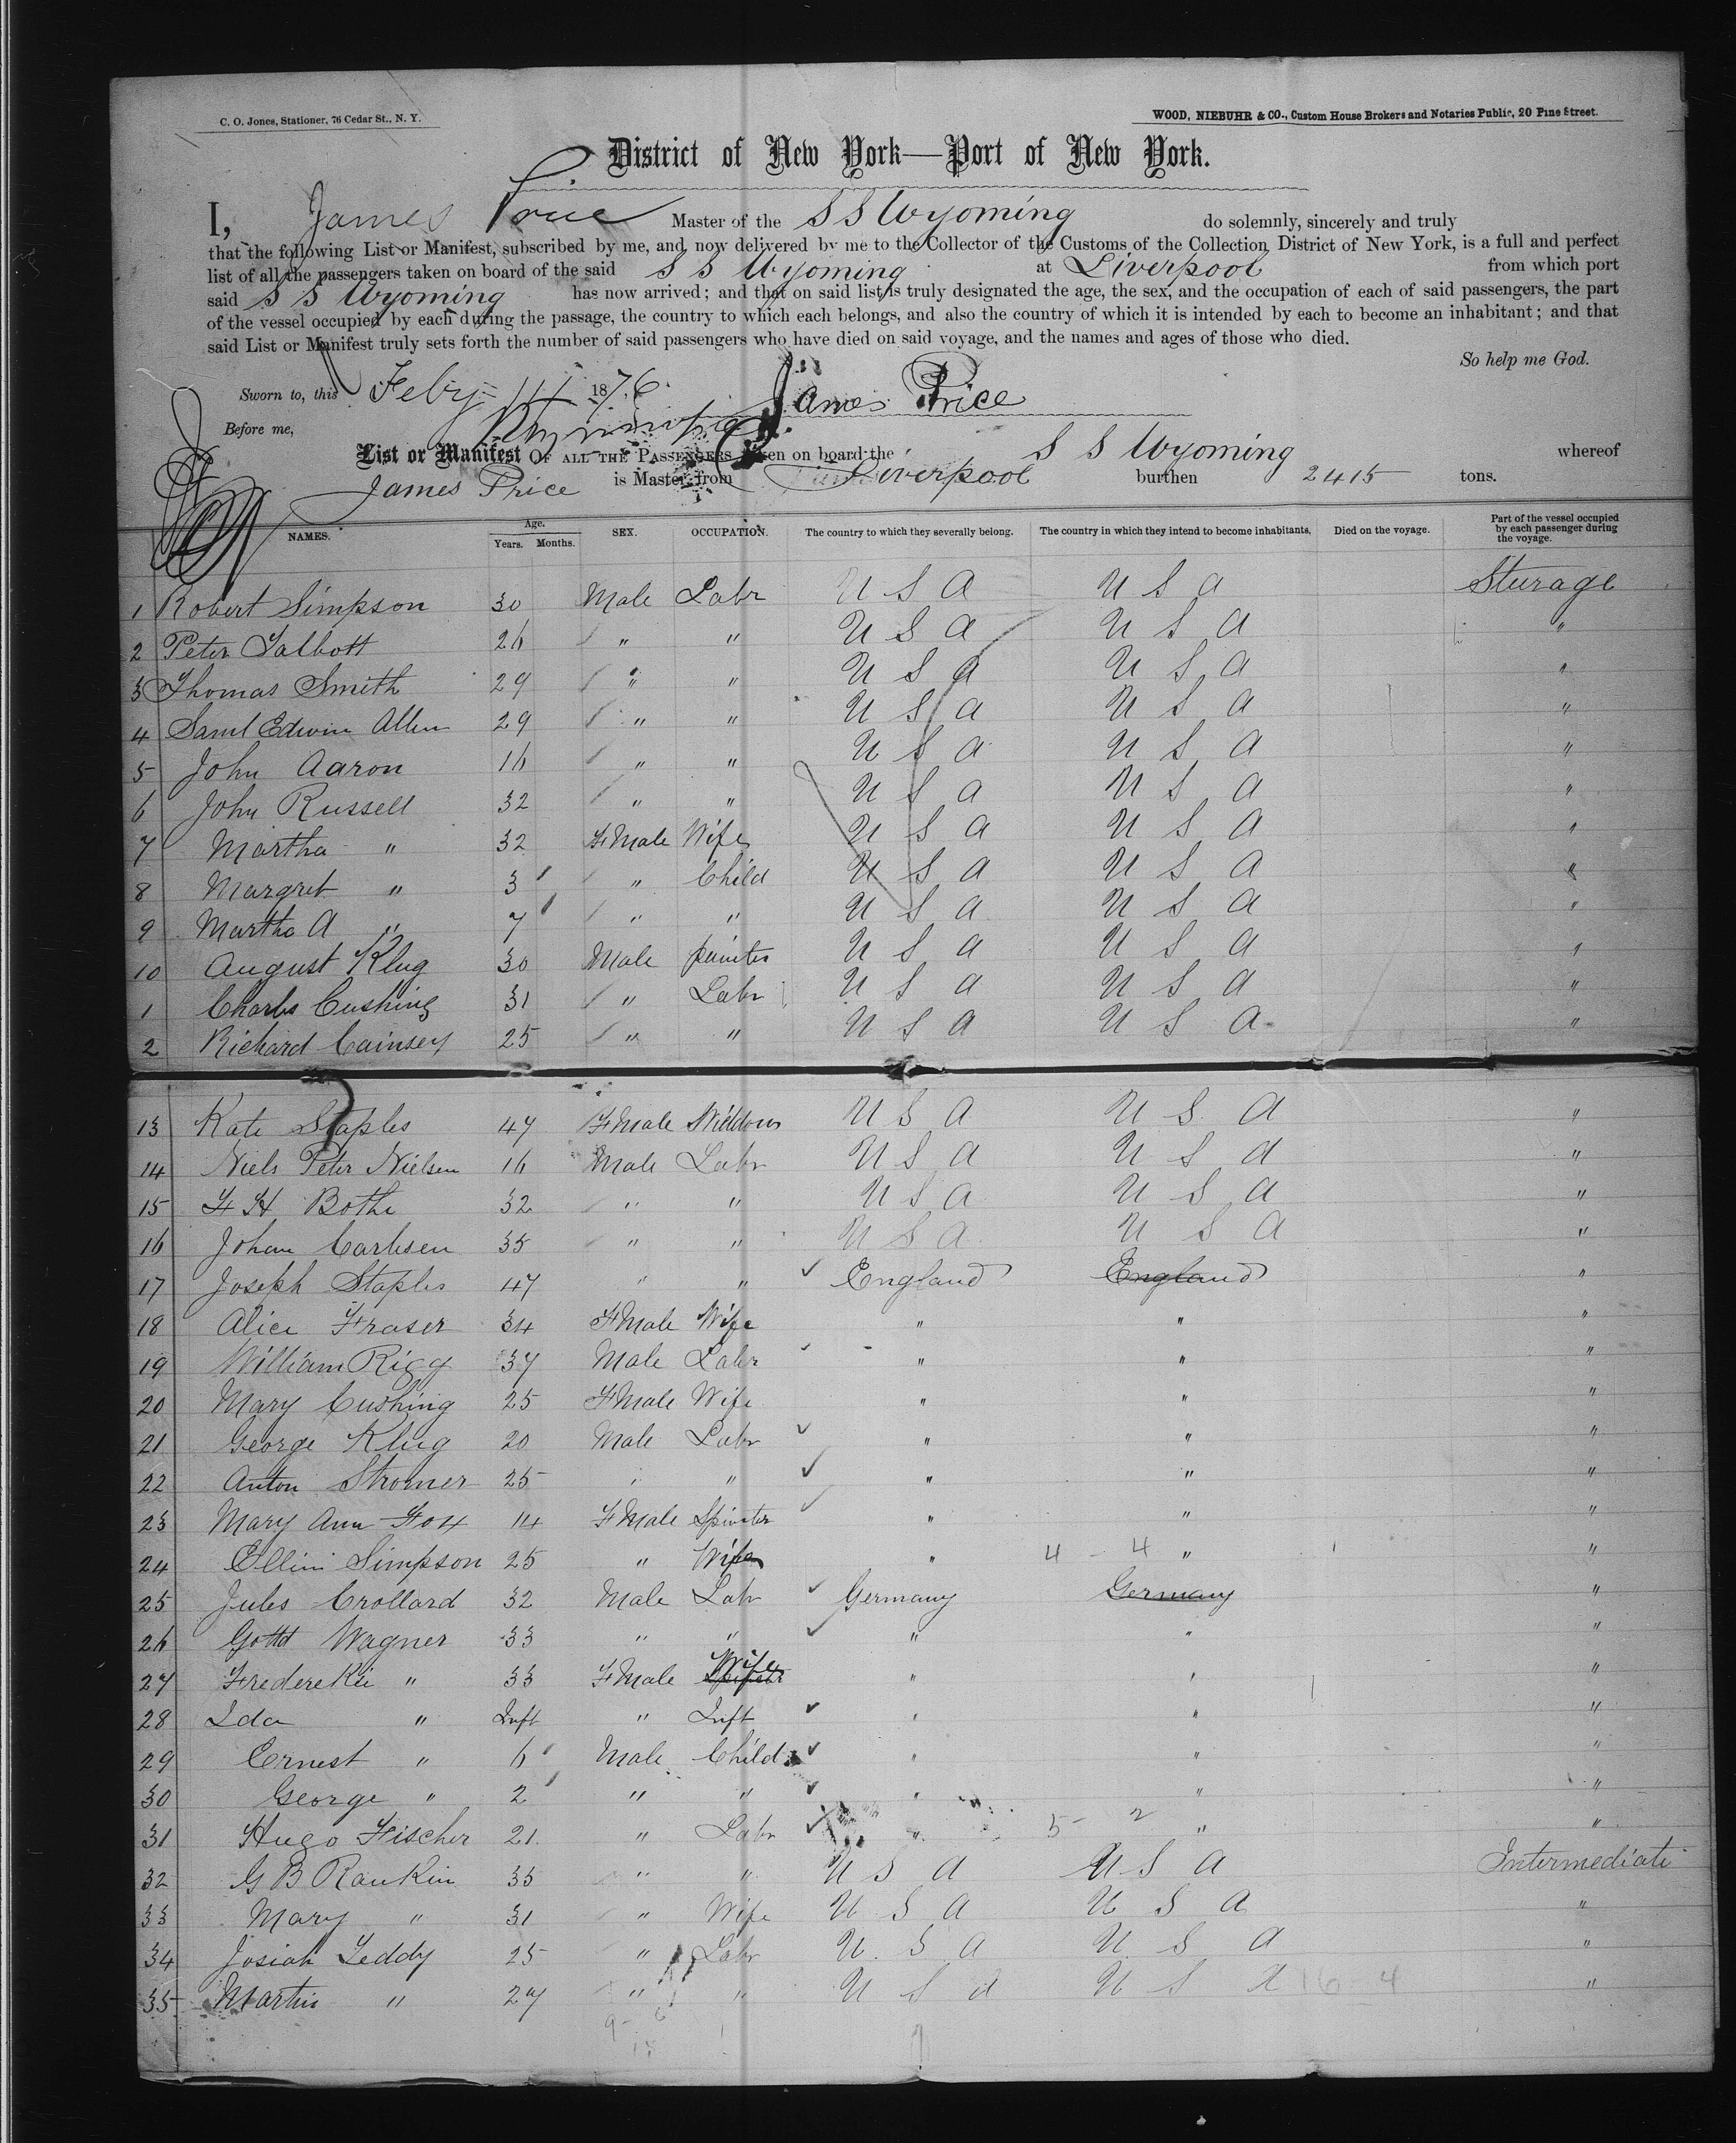 C. O. Jones, Stationer, 76 Cedar St., N. Y.
WOOD, NIEBUHR & CO., Custom House Brokers and Notaries Public, 20 Pine Street.
District of New York—Port of New York.
I, James Price Master of the S S Wyoming do solemnly, sincerely and truly
that the following List or Manifest, subscribed by me, and now delivered by me to the Collector of the Customs of the Collection District of New York, is a full and perfect
list of all the passengers taken on board of the said S S Wyoming at Liverpool from which port
said S S Wyoming has now arrived; and that on said list is truly designated the age, the sex, and the occupation of each of said passengers, the part
of the vessel occupied by each during the passage, the country to which each belongs, and also the country of which it is intended by each to become an inhabitant; and that
said List or Manifest truly sets forth the number of said passengers who have died on said voyage, and the names and ages of those who died.
So help me God.
Sworn to, this Feby 1876 James Price
Before me,
List or Manifest OF ALL THE PASSENGERS taken on board the S S Wyoming whereof
James Price is Master, from Liverpool burthen 2415 tons.
NAMES. Age. Years. Months. SEX. OCCUPATION. The country to which they severally belong. The country in which they intend to become inhabitants. Died on the voyage. Part of the vessel occupied by each passenger during the voyage.
1 Robert Simpson 30 Male Labr U S A U S A Sturage
2 Peter Talbott 26 " " U S A U S A "
3 Thomas Smith 29 " " U S A U S A "
4 Saml Edwin Allen 29 " " U S A U S A "
5 John Aaron 16 " " U S A U S A "
6 John Russell 32 " " U S A U S A "
7 Martha " 32 FMale Wife U S A U S A "
8 Margret " 3 " Child U S A U S A "
9 Martha A " 7 " " U S A U S A "
10 August Klug 30 Male painter U S A U S A "
1 Charles Cushing 31 " Labr U S A U S A "
2 Richard Cainsey 25 " " U S A U S A "
13 Kate Staples 47 FMale Widdow U S A U S A "
14 Niels Peter Nielsen 16 Male Labr U S A U S A "
15 F H Bothe 32 " " U S A U S A "
16 Johan Carlsen 35 " " U S A U S A "
17 Joseph Staples 47 " " England England "
18 Alice Fraser 34 FMale Wife " " "
19 William Rigg 37 Male Labr " " "
20 Mary Cushing 25 FMale Wife " " "
21 George Klug 20 Male Labr " " "
22 Anton Stromer 25 " " " " "
23 Mary Ann Fox 14 FMale Spinster " " "
24 Ellin Simpson 25 " Wife " 4 - 4 " "
25 Jules Crollard 32 Male Labr Germany Germany "
26 Gottd Wagner 33 " " " " "
27 Frederekie " 33 FMale Wife " " "
28 Ida " Inft " Inft " " "
29 Ernest " 6 Male Child " " "
30 George " 2 " " " " "
31 Hugo Fischer 21 " Labr " 5 - 2 " "
32 G B Rankin 35 " " U S A U S A Intermediate
33 Mary " 31 " Wife U S A U S A "
34 Josiah Leddy 25 " Labr U S A U S A "
35 Martin " 27 " " U S A U S A 16 - 4 "
9 - 6
15